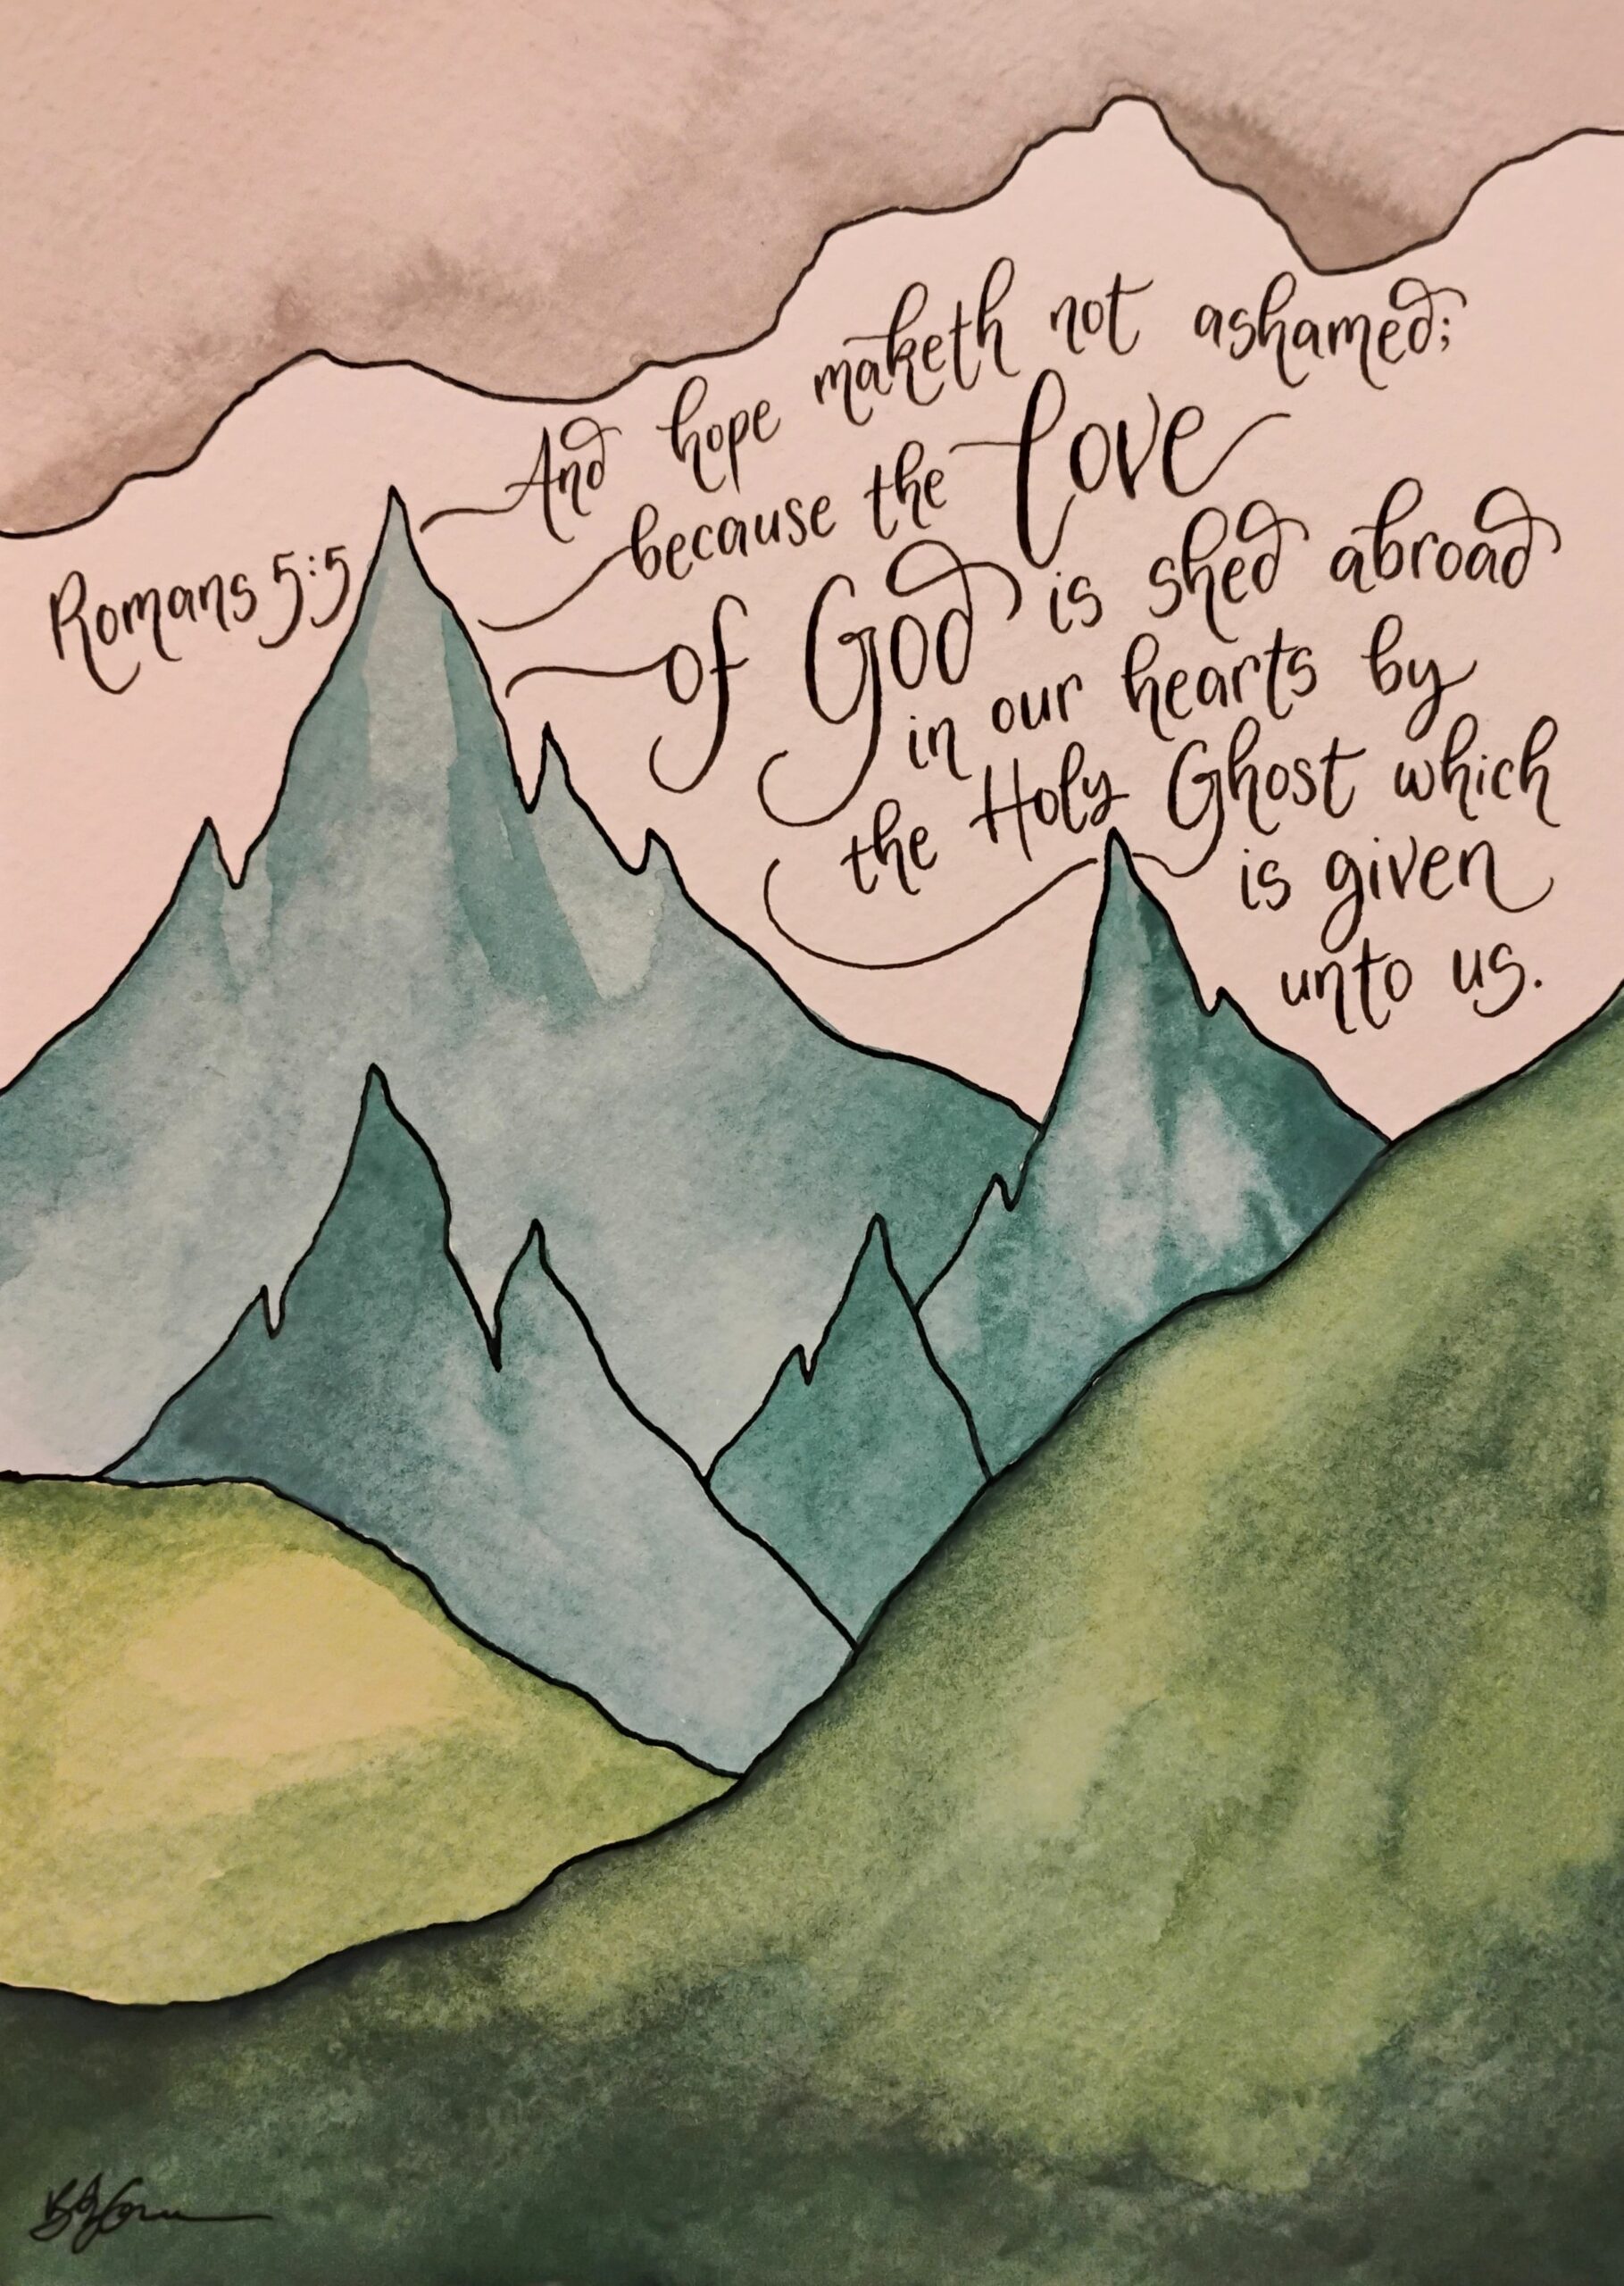 And hope maketh not ashamed;
because the love
of God is shed abroad
in our hearts by
the Holy Ghost which
is given
unto us.
Romans 5:5